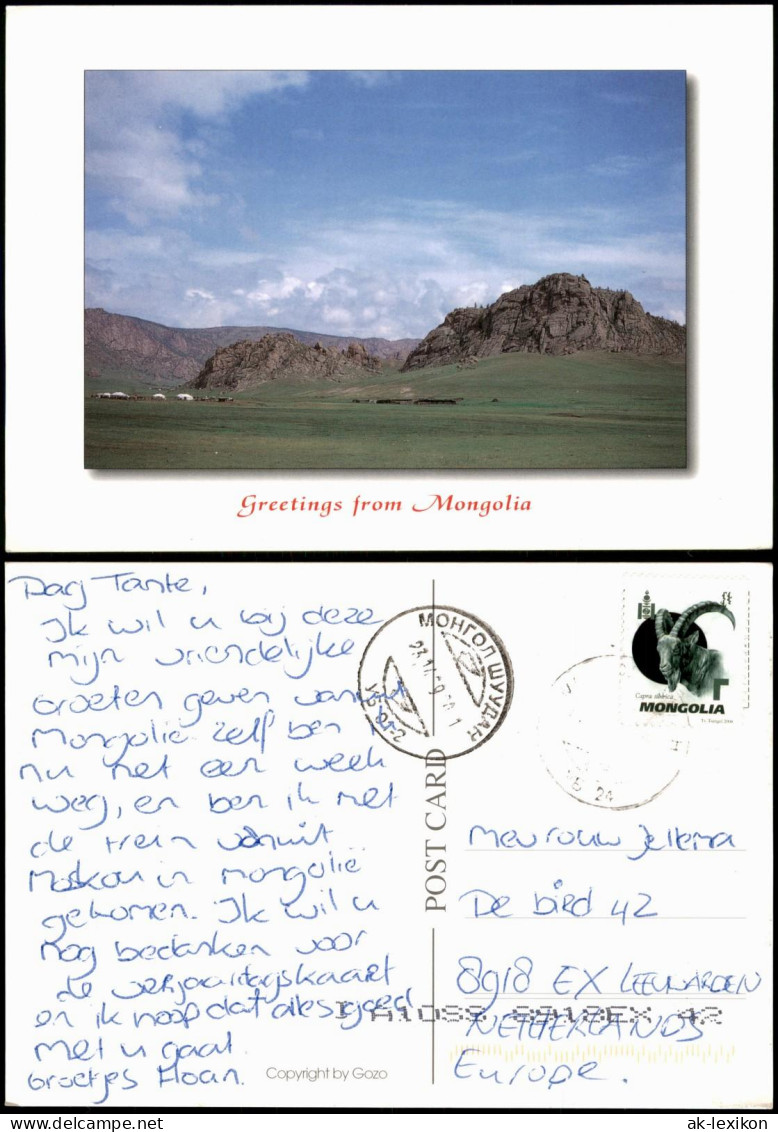 Greetings from Mongolia
Dag Tante,
Ik wil u bij deze
mijn vriendelijke
Groeten geven vanuit
Mongolie zelf ben ik
nu net een week
weg, en ben ik met
de trein vanuit
Moskou in Mongolië
gekomen. Ik wil u
nog bedanken voor
de verjaardagskaart
en ik hoop dat alles goed
met u gaat.
Groetjes Hoan.
Copyright by Gozo
POST CARD
МОНГОЛ ШУУДАН
УБ
Capra sibirica
Г
MONGOLIA
24
Mevrouw Jellema
De bird 42
8918 EX LEEUWARDEN
NETHERLANDS
8918EX 42
Europe.
ak-lexikon.com